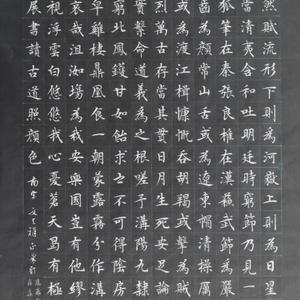 然賦流形下則為河嶽上則為日星
當清夷含和吐明廷時窮節乃見一
狐筆在秦張良椎在漢蘇武節為嚴
齒為顏常山舌或為遼東帽清操厲
或為渡江楫慷慨吞胡羯或為擊賊
烈萬古存當其貫日月生死安足論
實繫命道義為之根嗟予遘陽九隸
窮北風鑊甘如飴求之不可得陰房
皁雞棲鳳凰食一朝蒙霧露分作溝
哀哉沮洳場為我安樂國豈有他繆
視浮雲白悠悠我心憂蒼天曷有極
展書讀古道照顏色 南宋文天祥正氣歌